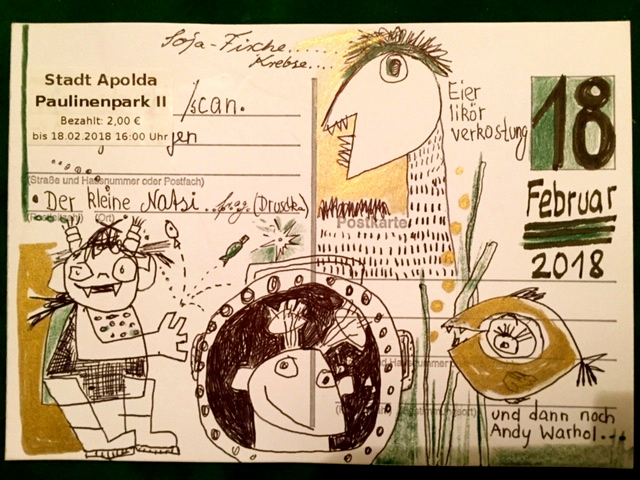 Soja-Fische......
Krebse....
Stadt Apolda
Paulinenpark II
Bezahlt: 2,00 €
bis 18.02.2018 16:00 Uhr
scan.
gen
(Straße und Hausnummer oder Postfach)
Der kleine Natsi...
(Druschka)
(Postleitzahl) (Ort)
Postkarte
Eier
likör
verkostung
18
Februar
2018
und Hausnummer
Bestimmungsort)
und dann noch
Andy Warhol...